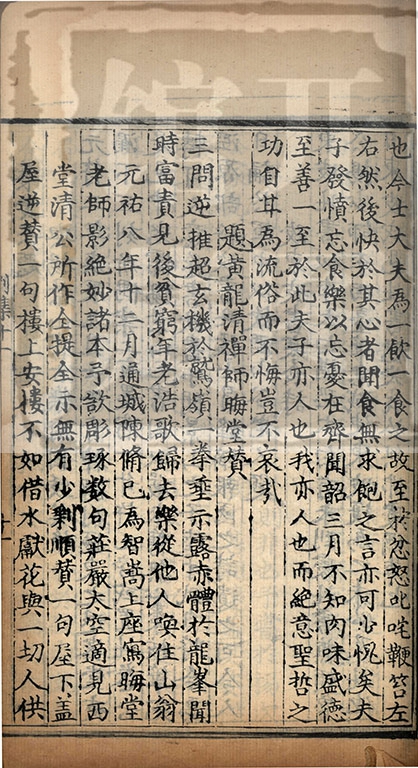 也今士大夫為一飲一食之故至於忿怒叱咤鞭笞左
右然後快於其心者聞食無求飽之言亦可少愧矣夫
子發憤忘食樂以忘憂在齊聞韶三月不知肉味盛德
至善一至於此夫子亦人也我亦人也而絕意聖哲之
功自甘為流俗而不悔豈不哀哉
題黃龍清禪師晦堂贊
三問逆推超玄機於鷲嶺一拳垂示露赤體於龍峯聞
時富貴見後貧窮年老浩歌歸去樂從他人喚住山翁
元祐八年十二月通城陳脩巳為智嵩上座寫晦堂
老師影絕妙諸本予欲彫琢數句莊嚴太空適見西
堂清公所作全提全示無有少剩順贊一句屋下蓋
屋逆贊一句樓上安樓不如借水獻花與一切人供
別集十一
十一